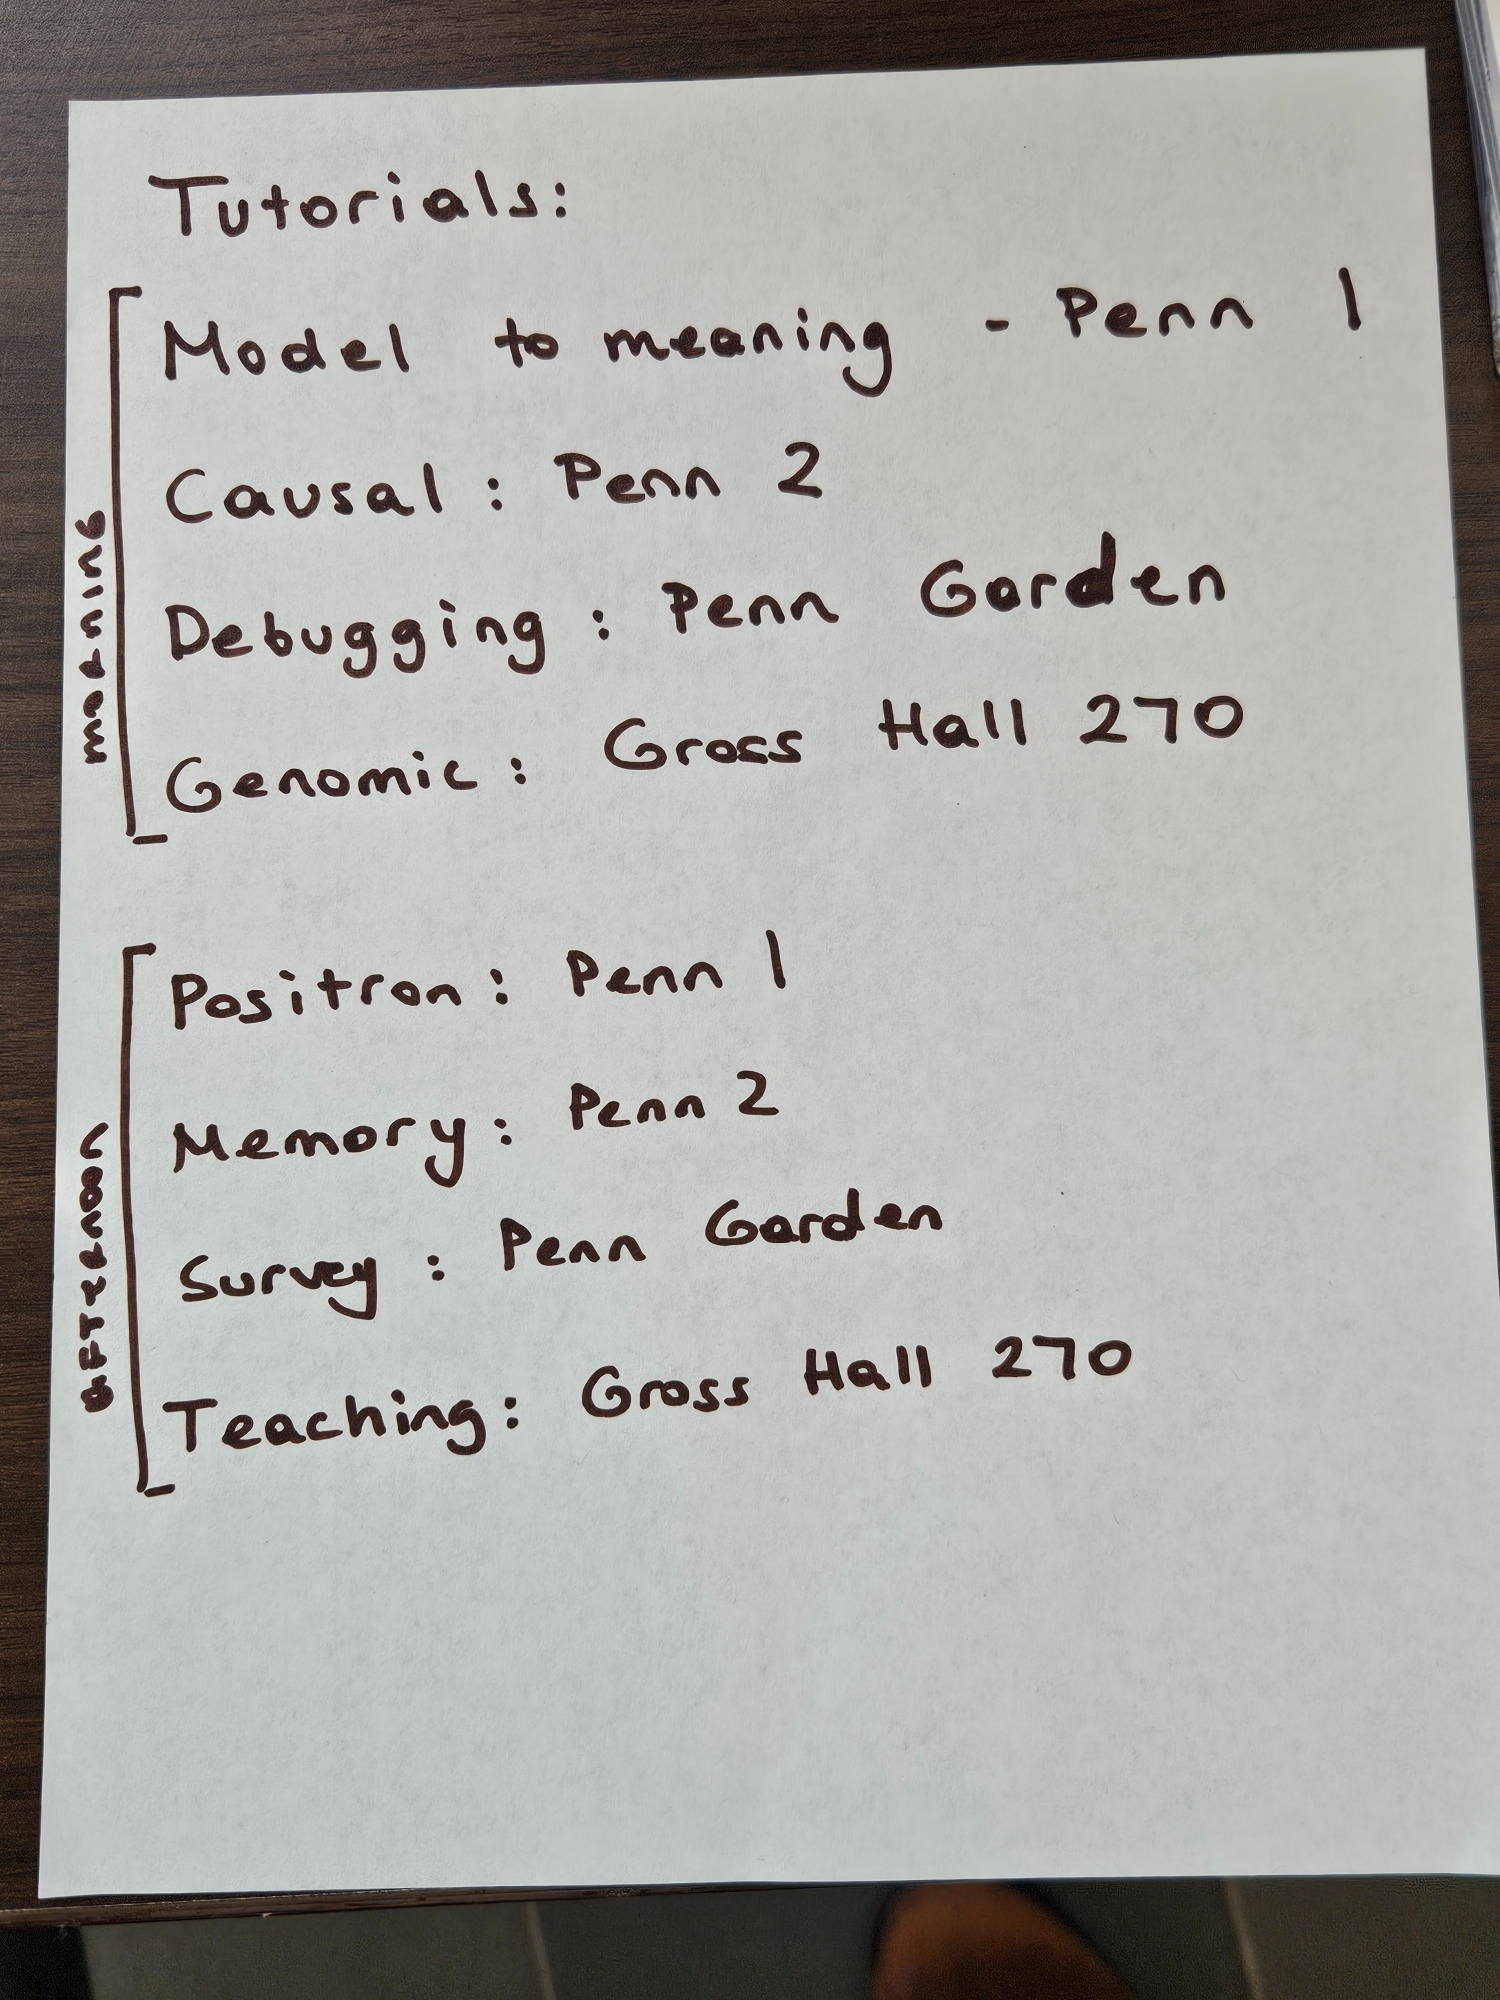 Tutorials:
morning
Model to meaning - Penn 1
Causal : Penn 2
Debugging : Penn Garden
Genomic : Gross Hall 270
afternoon
Positron : Penn 1
Memory : Penn 2
Survey : Penn Garden
Teaching : Gross Hall 270